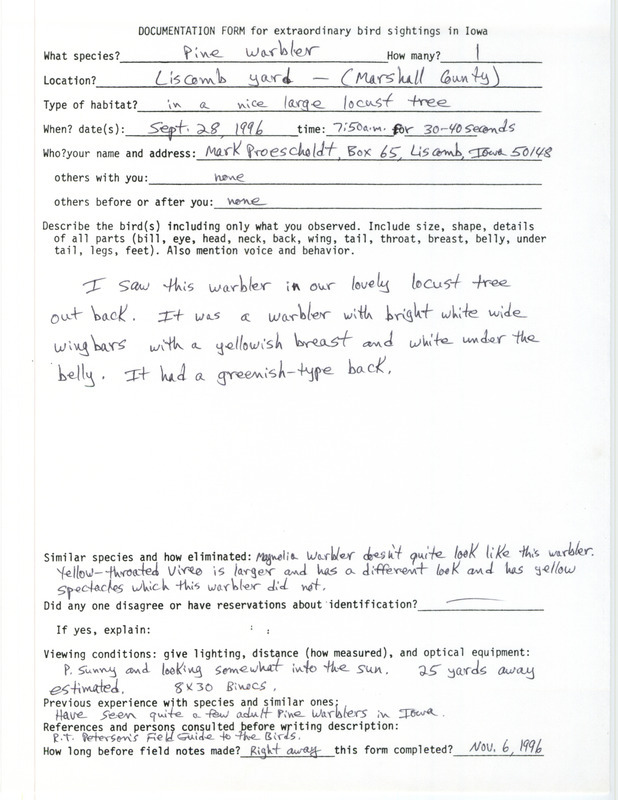 DOCUMENTATION FORM for extraordinary bird sightings in Iowa
What species? Pine Warbler How many? 1
Location? Liscomb yard - (Marshall County)
Type of habitat? in a nice large locust tree
When? date(s): Sept. 28, 1996 time: 7:50a.m. for 30-40 seconds
Who?your name and address: Mark Proescholdt, Box 65, Liscomb, Iowa 50148
others with you: none
others before or after you: none
Describe the bird(s) including only what you observed. Include size, shape, details
of all parts (bill, eye, head, neck, back, wing, tail, throat, breast, belly, under
tail, legs, feet). Also mention voice and behavior.
I saw this warbler in our lovely locust tree
out back. It was a warbler with bright white wide
wingbars with a yellowish breast and white under the
belly. It had a greenish-type back.
Similar species and how eliminated: Magnolia Warbler doesn't quite look like this warbler.
Yellow-throated Vireo is larger and has a different look and has yellow
spectacles which this warbler did not.
Did any one disagree or have reservations about identification?
If yes, explain:
Viewing conditions: give lighting, distance (how measured), and optical equipment:
P. sunny and looking somewhat into the sun. 25 yards away
estimated. 8x30 Binocs.
Previous experience with species and similar ones:
Have seen quite a few adult Pine Warblers in Iowa.
References and persons consulted before writing description:
R.T. Peterson's Field Guide to the Birds.
How long before field notes made? Right away this form completed? Nov. 6, 1996